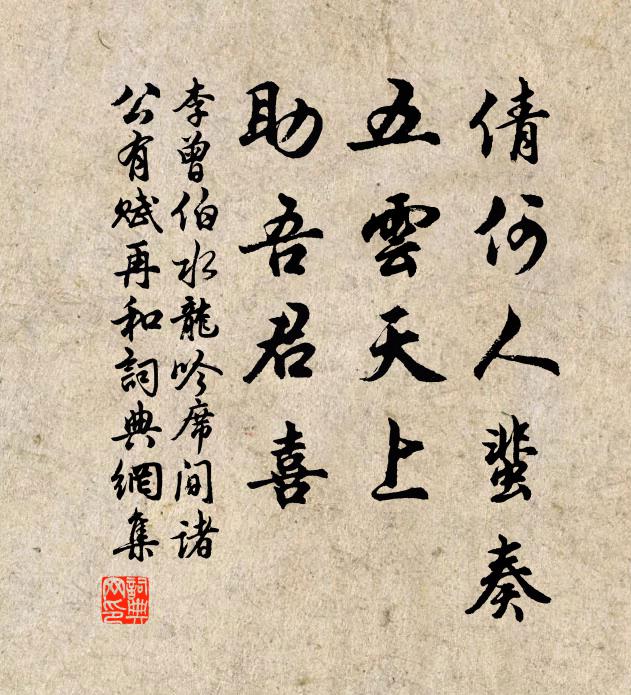 倩何人蜚奏
五雲天上
助吾君喜
李曾伯水龍吟席間諸
公有賦再和詞典網集
詞典網印